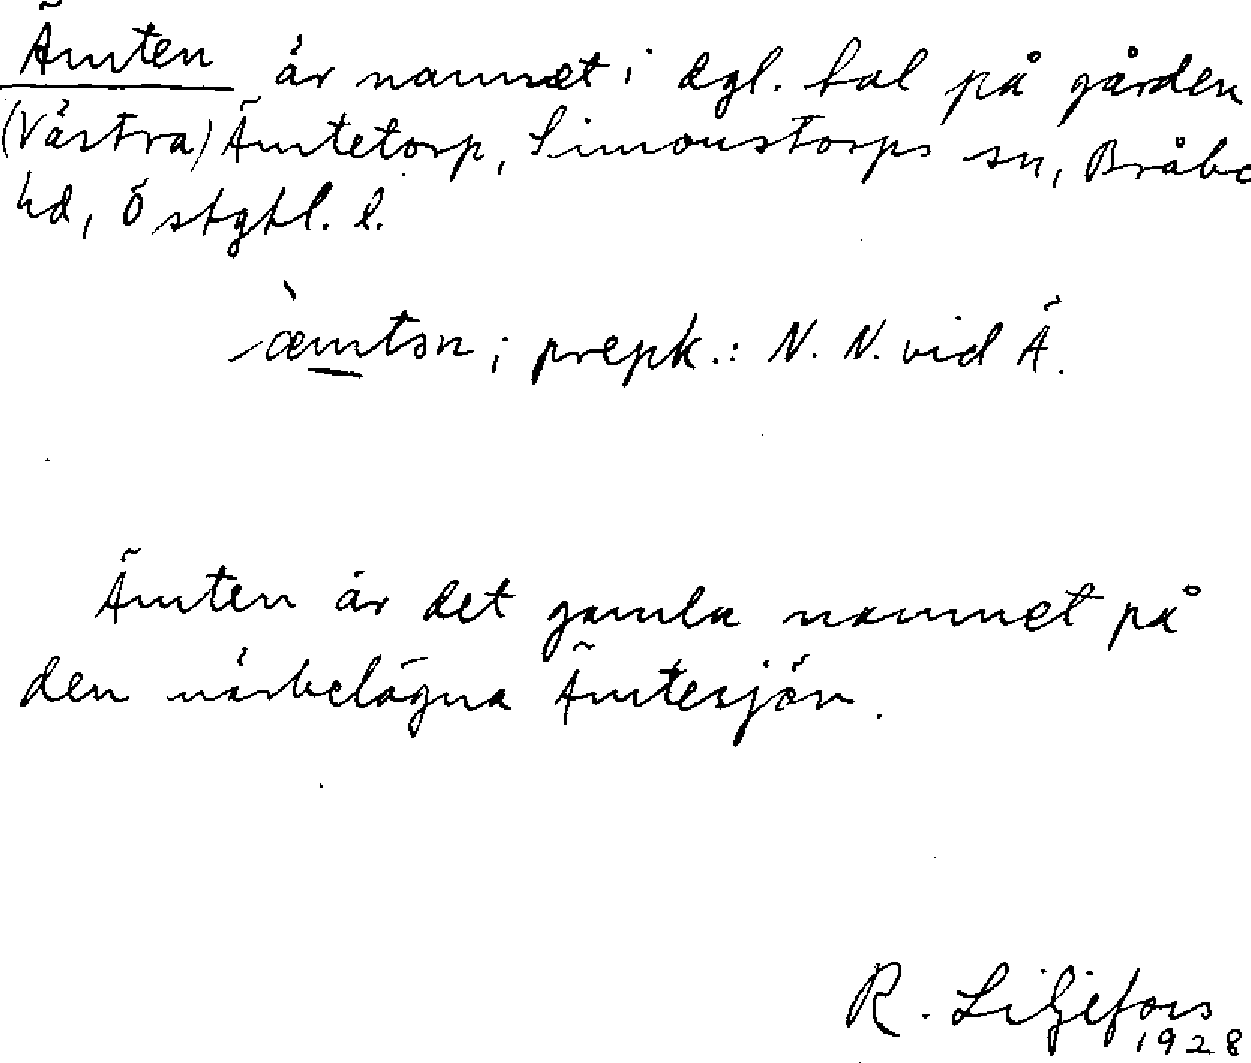 Ämten är namnet i dgl. tal på gården
(Västra) Ämtetorp, Simonstorps sn, Bråbo
hd, Östgtl. l.
æ̀mtən ; prepk.: N. N. vid Ä.
Ämten är det gamla namnet på
den närbelägna Ämtesjön.
R. Liljefors
1928